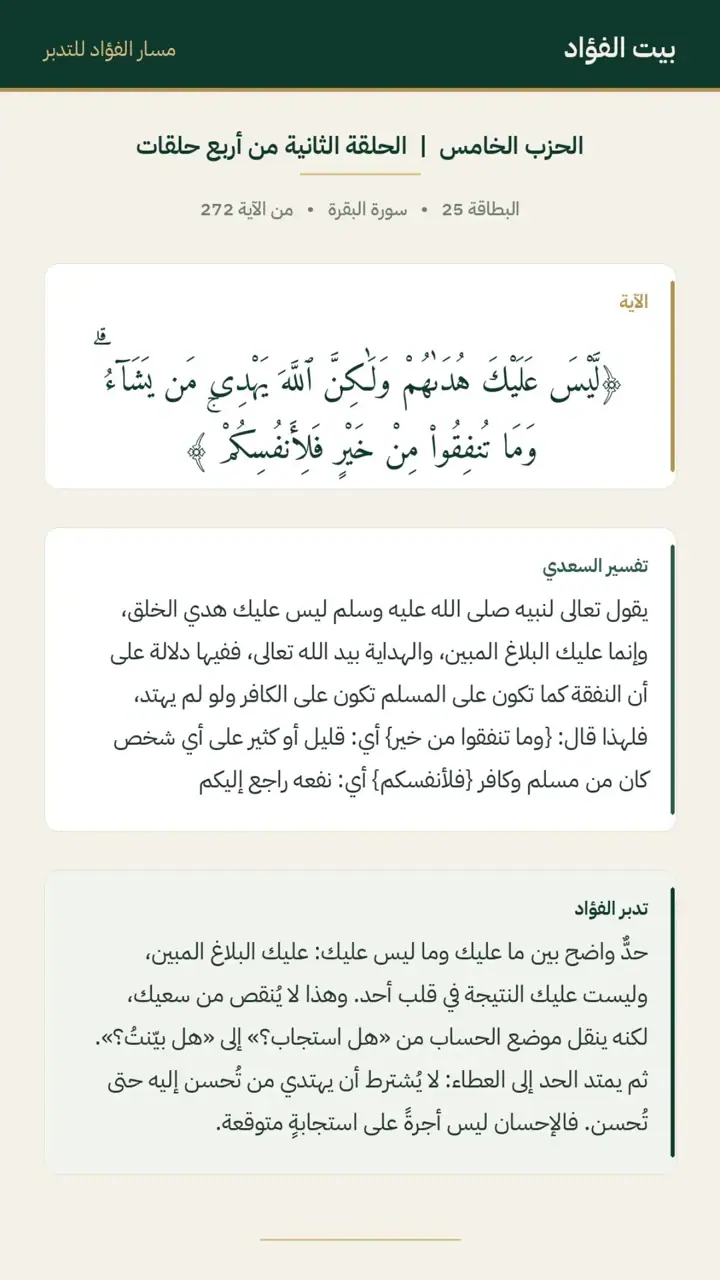 بيت الفؤاد
مسار الفؤاد للتدبر
الحزب الخامس | الحلقة الثانية من أربع حلقات
البطاقة 25 • سورة البقرة • من الآية 272
الآية
﴿لَّيْسَ عَلَيْكَ هُدَىٰهُمْ وَلَٰكِنَّ ٱللَّهَ يَهْدِي مَن يَشَآءُ ۗ
وَمَا تُنفِقُوا۟ مِنْ خَيْرٍ فَلِأَنفُسِكُمْ ۚ ﴾
تفسير السعدي
يقول تعالى لنبيه صلى الله عليه وسلم ليس عليك هدي الخلق،
وإنما عليك البلاغ المبين، والهداية بيد الله تعالى، ففيها دلالة على
أن النفقة كما تكون على المسلم تكون على الكافر ولو لم يهتد،
فلهذا قال: {وما تنفقوا من خير} أي: قليل أو كثير على أي شخص
كان من مسلم وكافر {فلأنفسكم} أي: نفعه راجع إليكم
تدبر الفؤاد
حدٌّ واضح بين ما عليك وما ليس عليك: عليك البلاغ المبين،
وليست عليك النتيجة في قلب أحد. وهذا لا يُنقص من سعيك،
لكنه ينقل موضع الحساب من «هل استجاب؟» إلى «هل بيّنتُ؟».
ثم يمتد الحد إلى العطاء: لا يُشترط أن يهتدي من تُحسن إليه حتى
تُحسن. فالإحسان ليس أجرةً على استجابةٍ متوقعة.